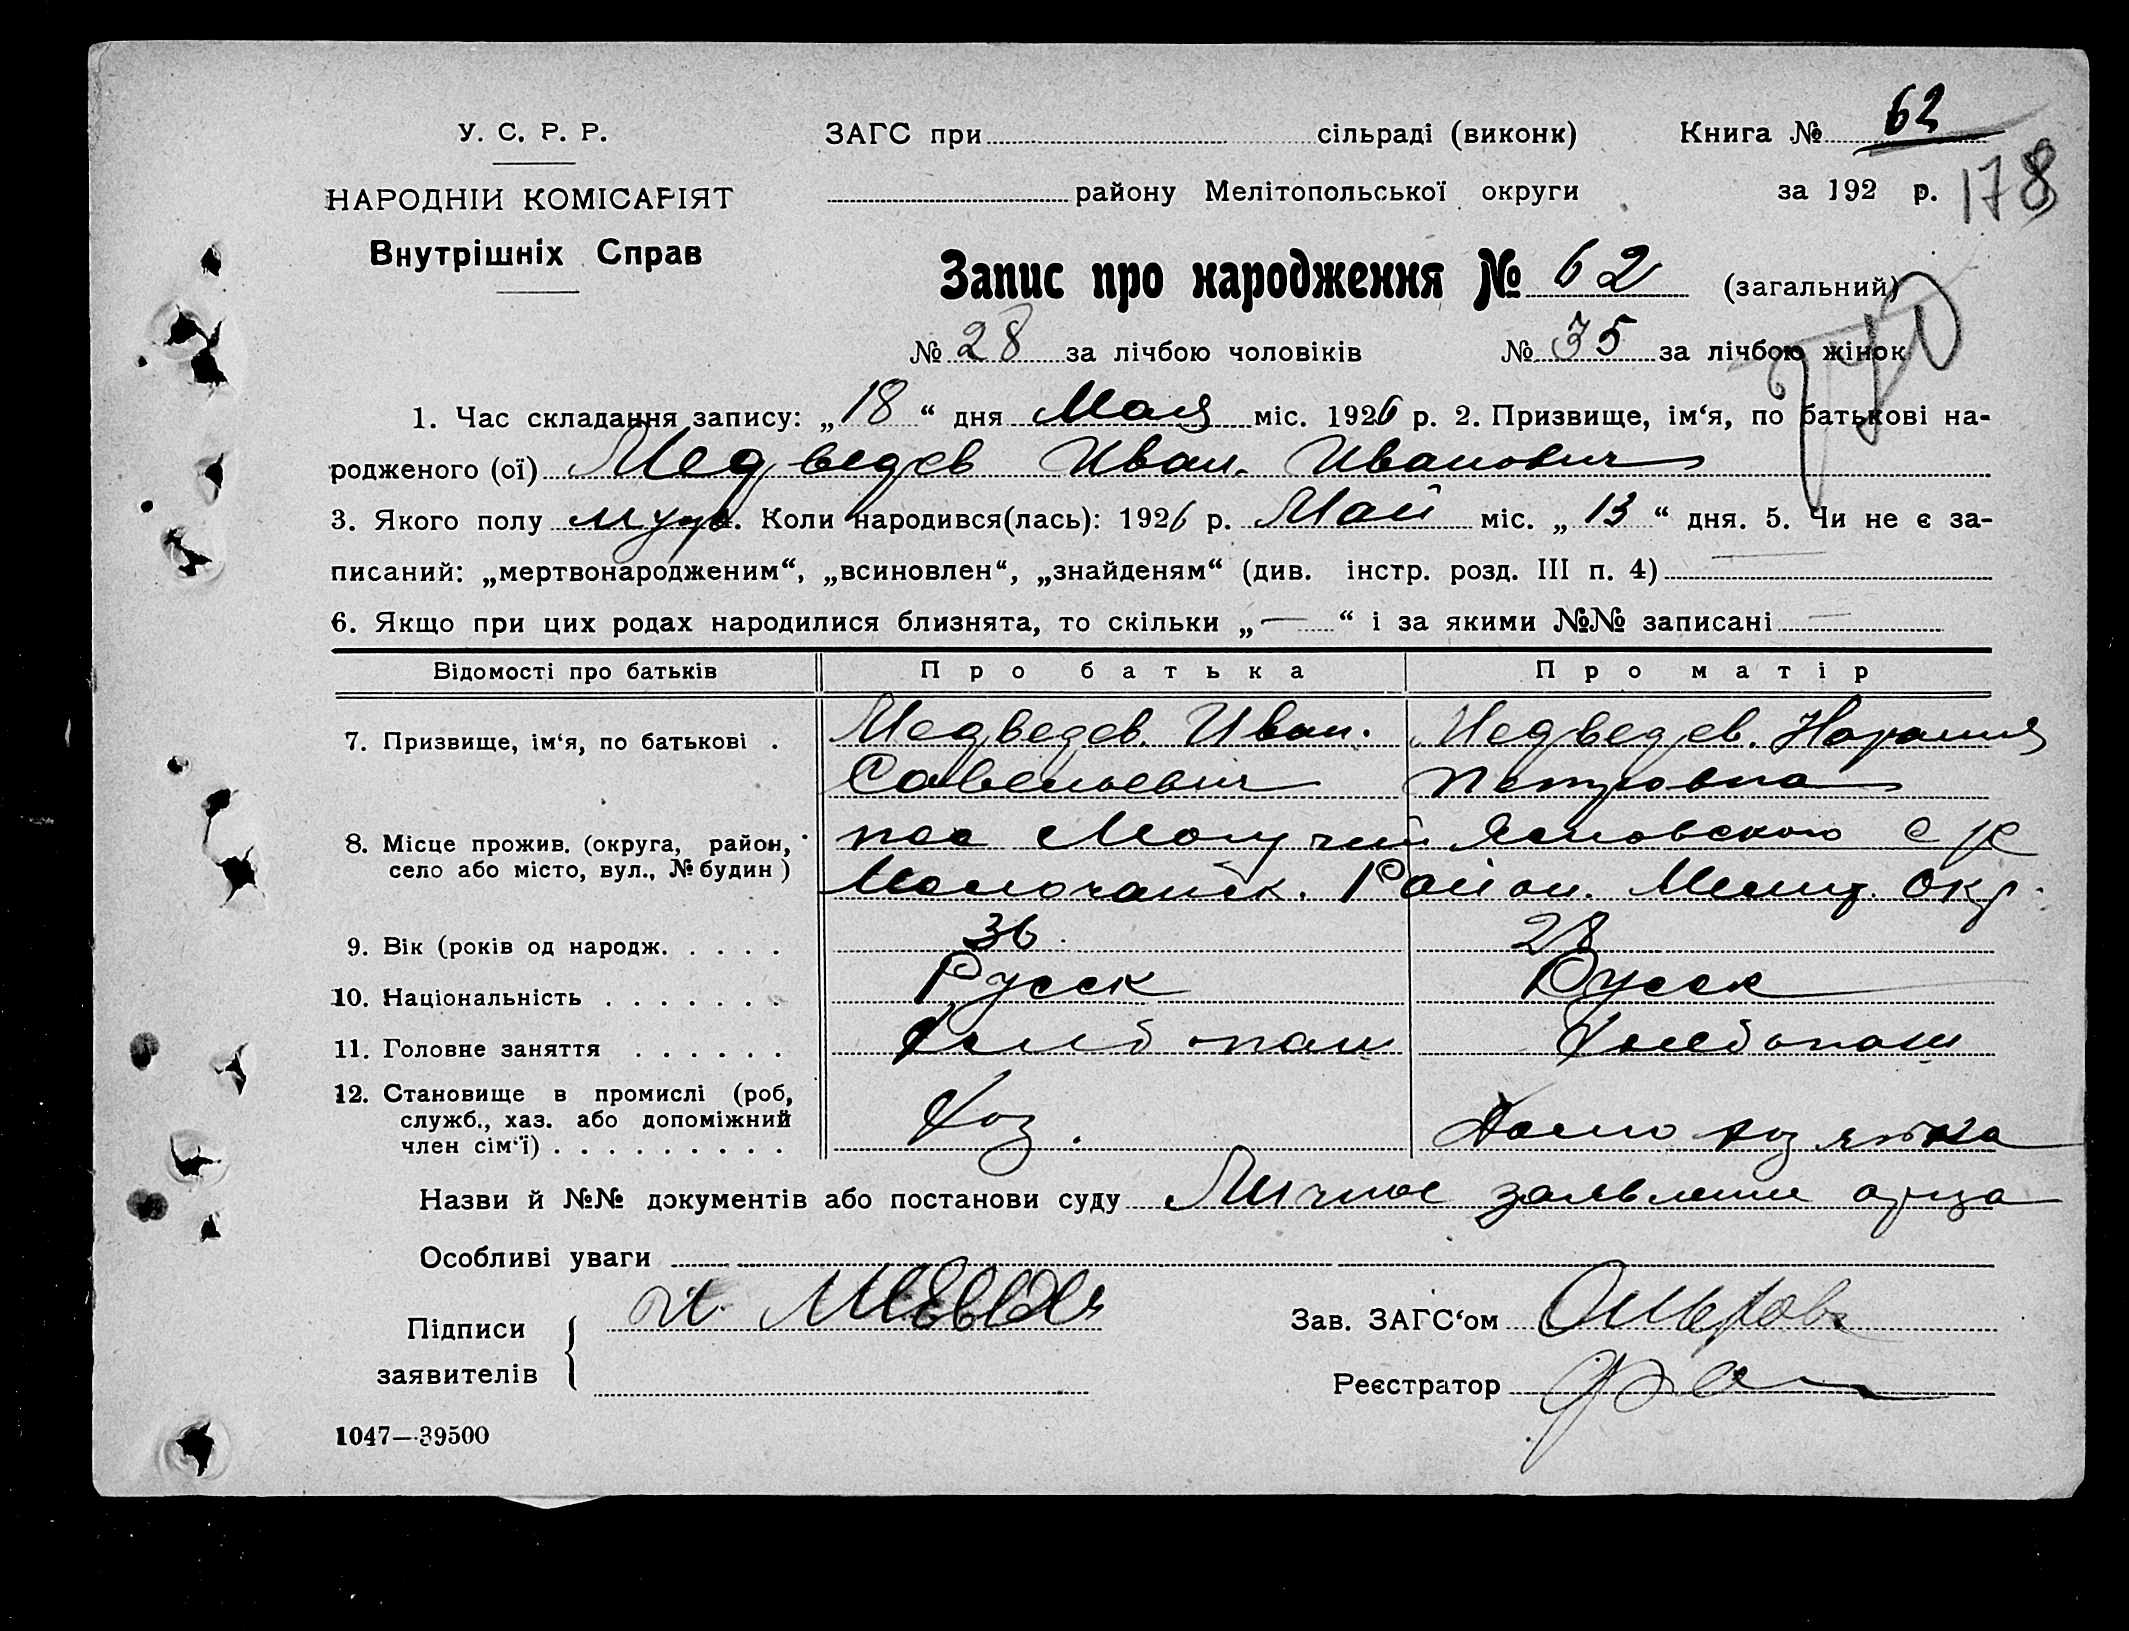 У. С. Р. Р.
НАРОДНІЙ КОМІСАРІЯТ
Внутрішніх Справ
ЗАГС при сільраді (виконк) Книга № 62
району Мелітопольської округи за 192 р. 178
Запис про народження № 62 (загальний)
№ 28 за лічбою чоловіків № 35 за лічбою жінок
1. Час складання запису: „18“ дня Мая міс. 1926 р. 2. Призвище, ім‘я, по батькові на-
родженого (ої) Медведев Иван. Иванович
3. Якого полу муж. Коли народився(лась): 1926 р. Май міс. „13“ дня. 5. Чи не є за-
писаний: „мертвонародженим“, „всиновлен“, „знайденям“ (див. інстр. розд. III п. 4)
6. Якщо при цих родах народилися близнята, то скільки „—“ і за якими №№ записані —
Відомості про батьків Про батька Про матір
7. Призвище, ім‘я, по батькові . Медведев. Иван. Медведев.
Савельевич Петровна
8. Місце прожив. (округа, район, село або місто, вул., № будин) пос
Молочанск. Район. Мелит. Окр.
9. Вік (років од народж. . . . . 36 28
10. Національність . . . . . . . Русск Русск
11. Головне заняття . . . . . . Хлебопаш Хлебопаш
12. Становище в промислі (роб, служб., хаз. або допоміжний член сім‘ї) . . . . . . . . . Хоз. Домохозяйка
Назви й №№ документів або постанови суду Личное заявление отца
Особливі уваги
Підписи
заявителів
Зав. ЗАГС‘ом
Реєстратор
1047—39500